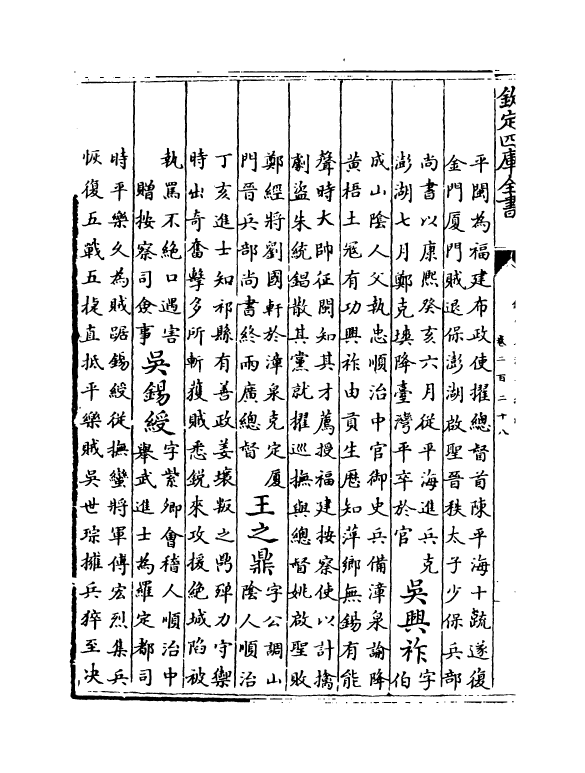 欽定四庫全書
卷二百二十八
平閩為福建布政使擢總督首陳平海十疏遂復
金門厦門賊退保澎湖啟聖晉秩太子少保兵部
尚書以康熙癸亥六月從平海進兵克
澎湖七月鄭克塽降臺灣平卒於官
吳興祚
字
伯
成山陰人父執忠順治中官御史兵備漳泉論降
黃梧土冦有功興祚由貢生歷知萍鄉無錫有能
聲時大帥征閩知其才薦授福建按察使以計擒
劇盜朱統錩散其黨就擢巡撫與總督姚啟聖敗
鄭經將劉國軒於漳泉克定厦
門晉兵部尚書終兩廣總督
王之鼎
字公調山
陰人順治
丁亥進士知祁縣有善政姜壤叛之鼎殫力守禦
時出奇奮擊多所斬獲賊悉銳來攻援絕城陷被
執罵不絕口遇害
贈按察司僉事
吳錫綬
字紫卿會稽人順治中
舉武進士為羅定都司
時平樂久為賊踞錫綬從撫蠻將軍傅宏烈集兵
恢復五戰五捷直抵平樂賊吳世琮擁兵猝至决